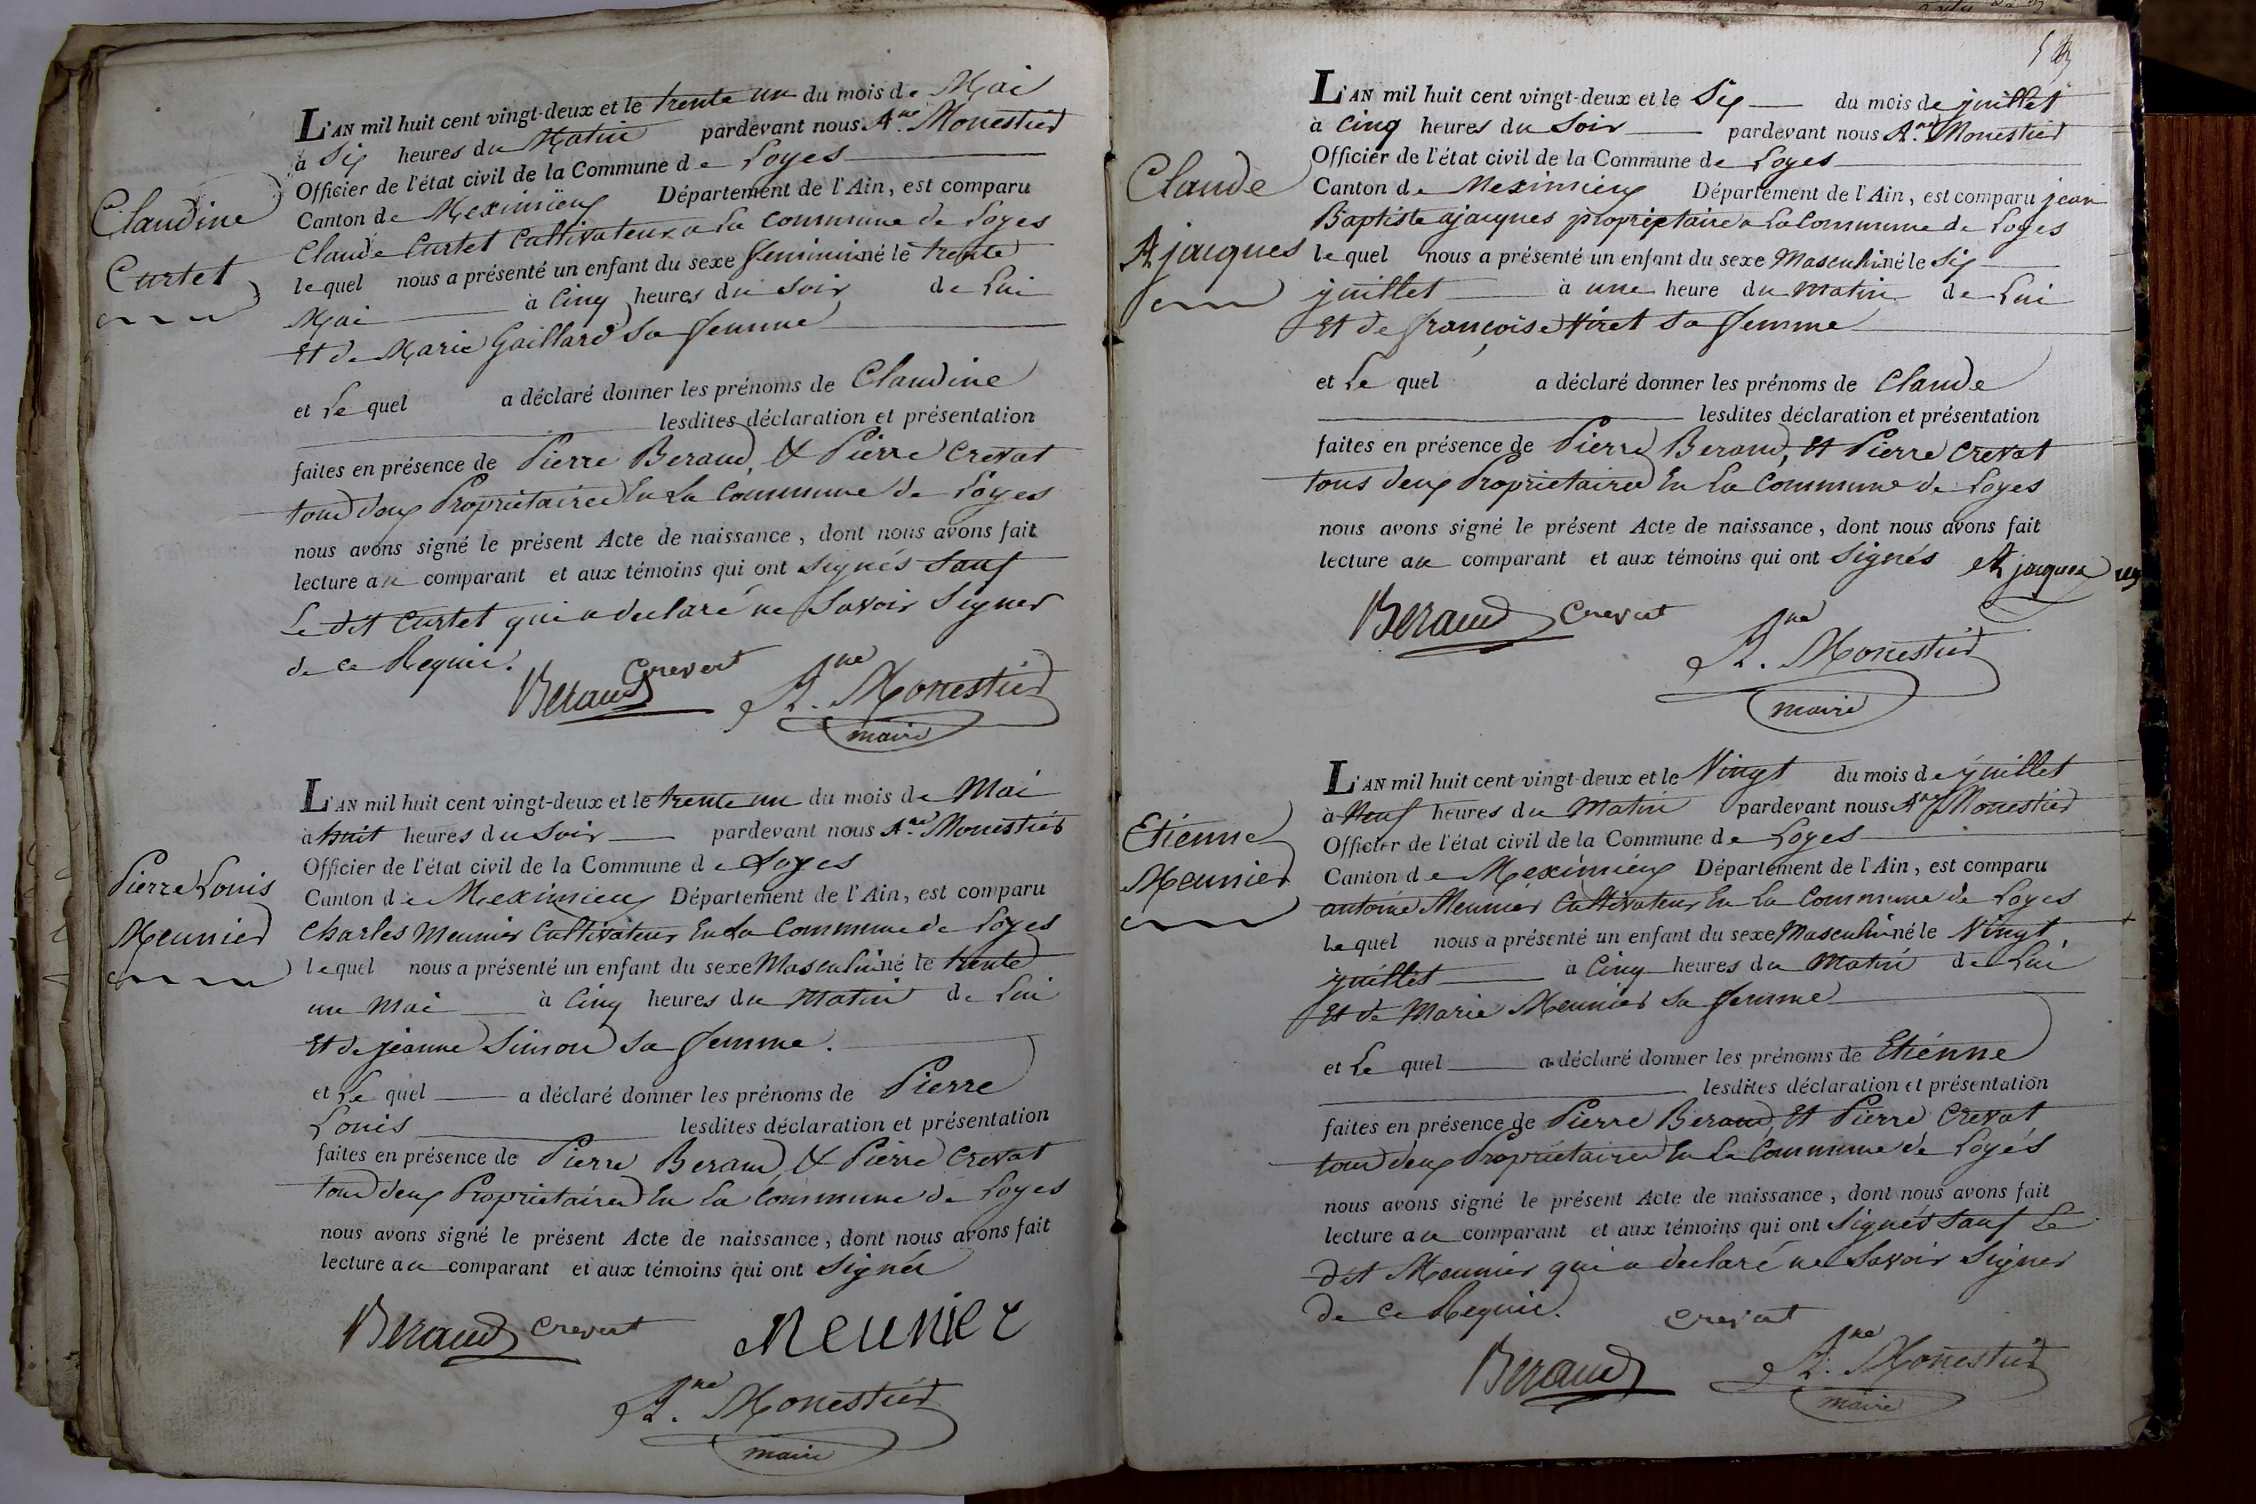 Claudine
Curtet
L'AN mil huit cent vingt-deux et le trente un du mois de Mai
à Six heures du Matin pardevant nous A.ne Monestier
Officier de l'état civil de la Commune de Loyes
Canton de Meximieux Département de l'Ain, est comparu
Claude Curtet Cultivateur a La commune de Loyes
lequel nous a présenté un enfant du sexe feminin né le trente
Mai à Cinq heures du Soir de Lui
Et de Marie Gaillard Sa femme
et Le quel a déclaré donner les prénoms de Claudine
lesdites déclaration et présentation
faites en présence de Pierre Beraud, & Pierre Crevat
tous deux Propriétaires En La Commune de Loyes
nous avons signé le présent Acte de naissance, dont nous avons fait
lecture au comparant et aux témoins qui ont Signés Sauf
Le dit Curtet qui a declaré ne Savoir Signer
de ce Requis.
Crevat
Beraud A.ne Monestier
maire
Pierre Louis
Meunier
L'AN mil huit cent vingt-deux et le trente un du mois de Mai
à huit heures du Soir pardevant nous A.ne Monestier
Officier de l'état civil de la Commune de Loyes
Canton de Meximieux Département de l'Ain, est comparu
Charles Meunier Cultivateur En La Commune de Loyes
lequel nous a présenté un enfant du sexe Masculin né le trente
un Mai à Cinq heures du Matin de Lui
Et de jeanne Simon Sa femme.
et Le quel a déclaré donner les prénoms de Pierre
Louis lesdites déclaration et présentation
faites en présence de Pierre Beraud, & Pierre Crevat
tous deux Propriétaires En La Commune de Loyes
nous avons signé le présent Acte de naissance, dont nous avons fait
lecture au comparant et aux témoins qui ont Signés
Beraud Crevat Meunier
A.ne Monestier
maire
Claude
Ajacques
L'AN mil huit cent vingt-deux et le Six du mois de juillet
à Cinq heures du Soir pardevant nous A.ne Monestier
Officier de l'état civil de la Commune de Loyes
Canton de Meximieux Département de l'Ain, est comparu jean
Baptiste ajacques propriétaire a La Commune de Loyes
lequel nous a présenté un enfant du sexe Masculin né le Six
juillet à une heure du Matin de Lui
Et de françoise Viret Sa femme
et Le quel a déclaré donner les prénoms de Claude
lesdites déclaration et présentation
faites en présence de Pierre Beraud, Et Pierre Crevat
tous deux Propriétaires En La Commune de Loyes
nous avons signé le présent Acte de naissance, dont nous avons fait
lecture au comparant et aux témoins qui ont Signés Ajacques
Beraud Crevat
A.ne Monestier
maire
Etienne
Meunier
L'AN mil huit cent vingt-deux et le Vingt du mois de juillet
à Neuf heures du Matin pardevant nous A.ne Monestier
Officier de l'état civil de la Commune de Loyes
Canton de Meximieux Département de l'Ain, est comparu
antoine Meunier Cultivateur En La Commune de Loyes
Lequel nous a présenté un enfant du sexe Masculin né le Vingt
juillet à Cinq heures du Matin de Lui
Et de Marie Meunier Sa femme
et Le quel a déclaré donner les prénoms de Etienne
lesdites déclaration et présentation
faites en présence de Pierre Beraud, Et Pierre Crevat
tous deux Propriétaires En La Commune de Loyes
nous avons signé le présent Acte de naissance, dont nous avons fait
lecture au comparant et aux témoins qui ont Signés Sauf Le
dit Meunier qui a declaré ne Savoir Signer
de ce Requis.
Crevat
Beraud A.ne Monestier
maire